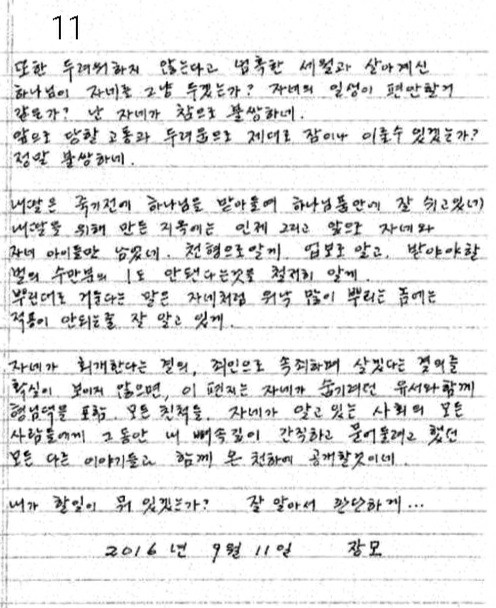 11
또한 두려워하지 않는다고 넘쳐한 세월과 살아계신
하나님이 자네를 그냥 두겠는가? 자네의 일생이 편안할거
같은가? 난 자네가 참으로 불쌍하네.
앞으로 당할 고통과 두려움으로 제대로 잠이나 이룰수 있겠는가?
정말 불쌍하네.
내딸은 죽기전에 하나님을 받아들여 하나님품안에 잘 쉬고있네
내딸을 위해 만든 지옥에는 인제 그리고 앞으로 자네와
자네 아이들만 남았네. 천형으로알게. 업보로 알고. 받아야할
벌의 수만분의 1도 안된다는것을 철저히 알게.
뿌린대로 거둔다는 말은 자네처럼 워낙 많이 뿌리는 놈에는
적용이 안되는줄 잘 알고 있게.
자네가 회개한다는 결의, 죄인으로 속죄하며 살겠다는 결의를
확실이 보이지 않으면, 이 편지는 자네가 숨기려던 유서와함께
형님댁을 포함. 모든 친척들. 자네가 알고 있는 사회의 모든
사람들에게 그동안 내 뼈속깊이 간직하고 묻어둘려고 했던
모든 다른 이야기들과 함께 온 천하에 공개할것이네.
내가 할일이 뭐 있겠는가? 잘 알아서 판단하게...
2016년 9월 11일 장모